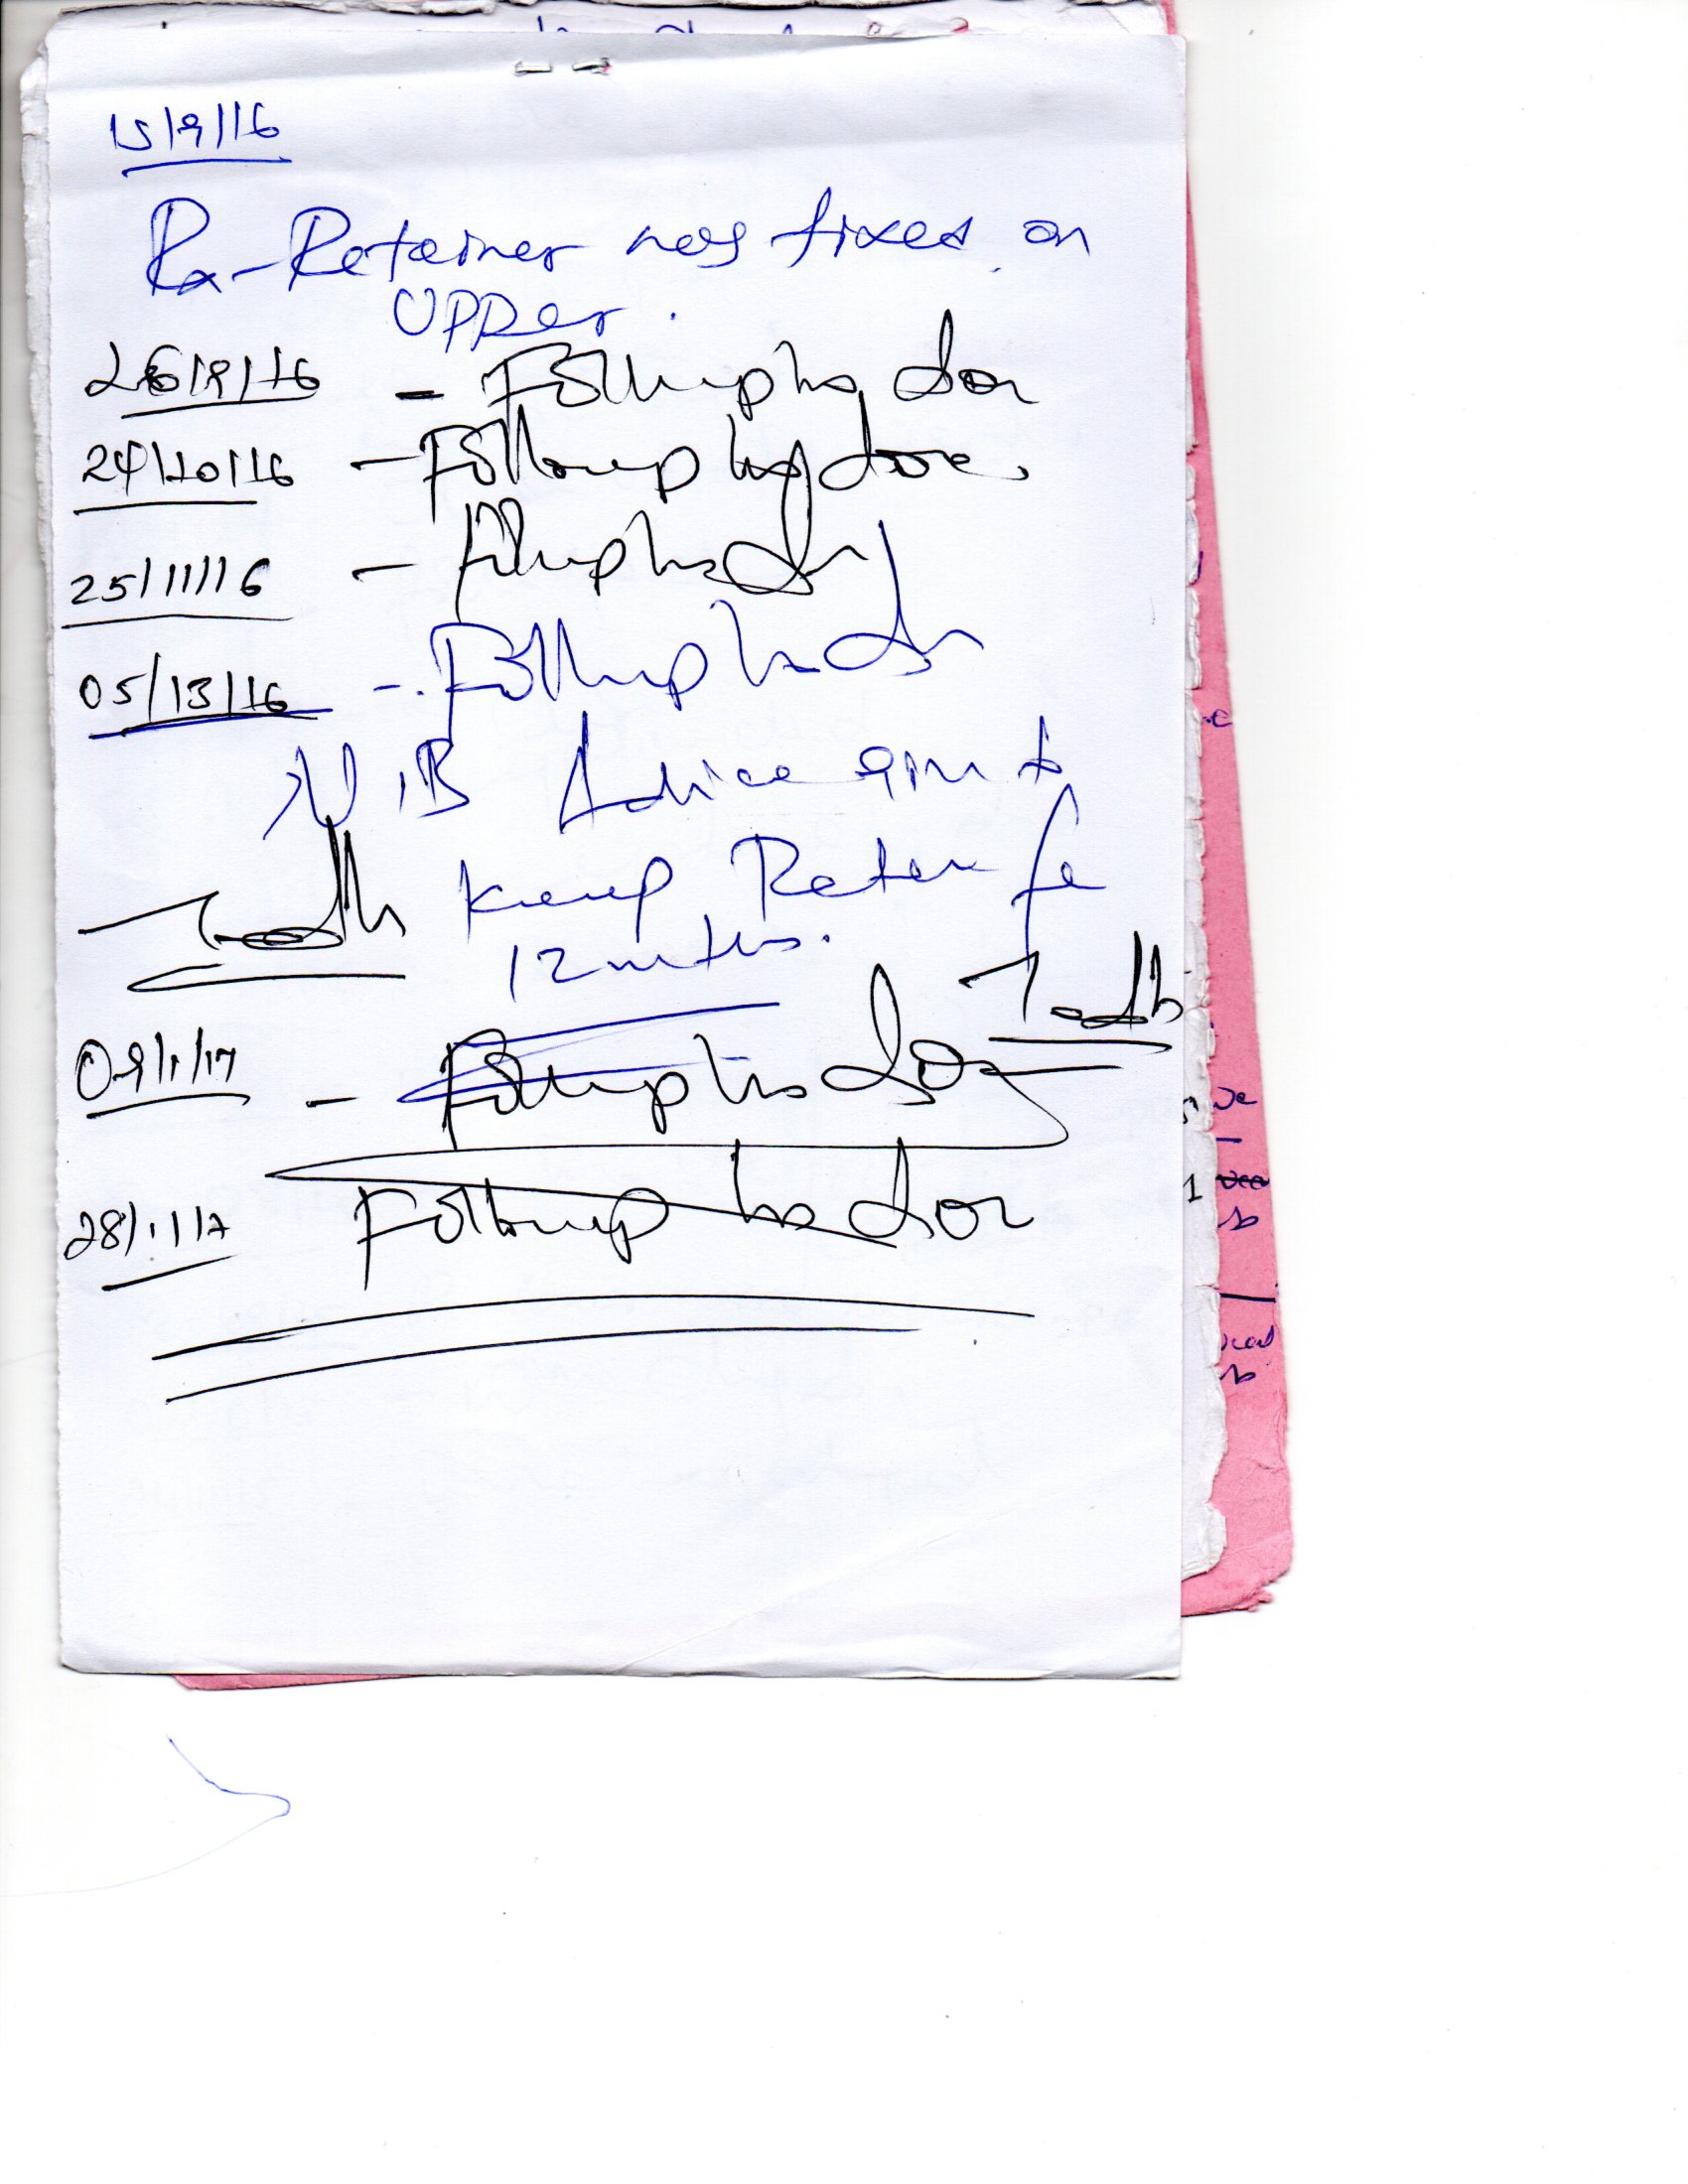 15/9/16
Rx - Retainer was fixed on
Upper.
26/9/16 - Followup has don
24/10/16 - Followup has done.
25/11/16 - Followup has dn
05/13/16 -. Followup has dn
N.B Advice givn to
keep Retain for
12 mths.
09/1/17 - Followup has don
28/1/17 Followup has don